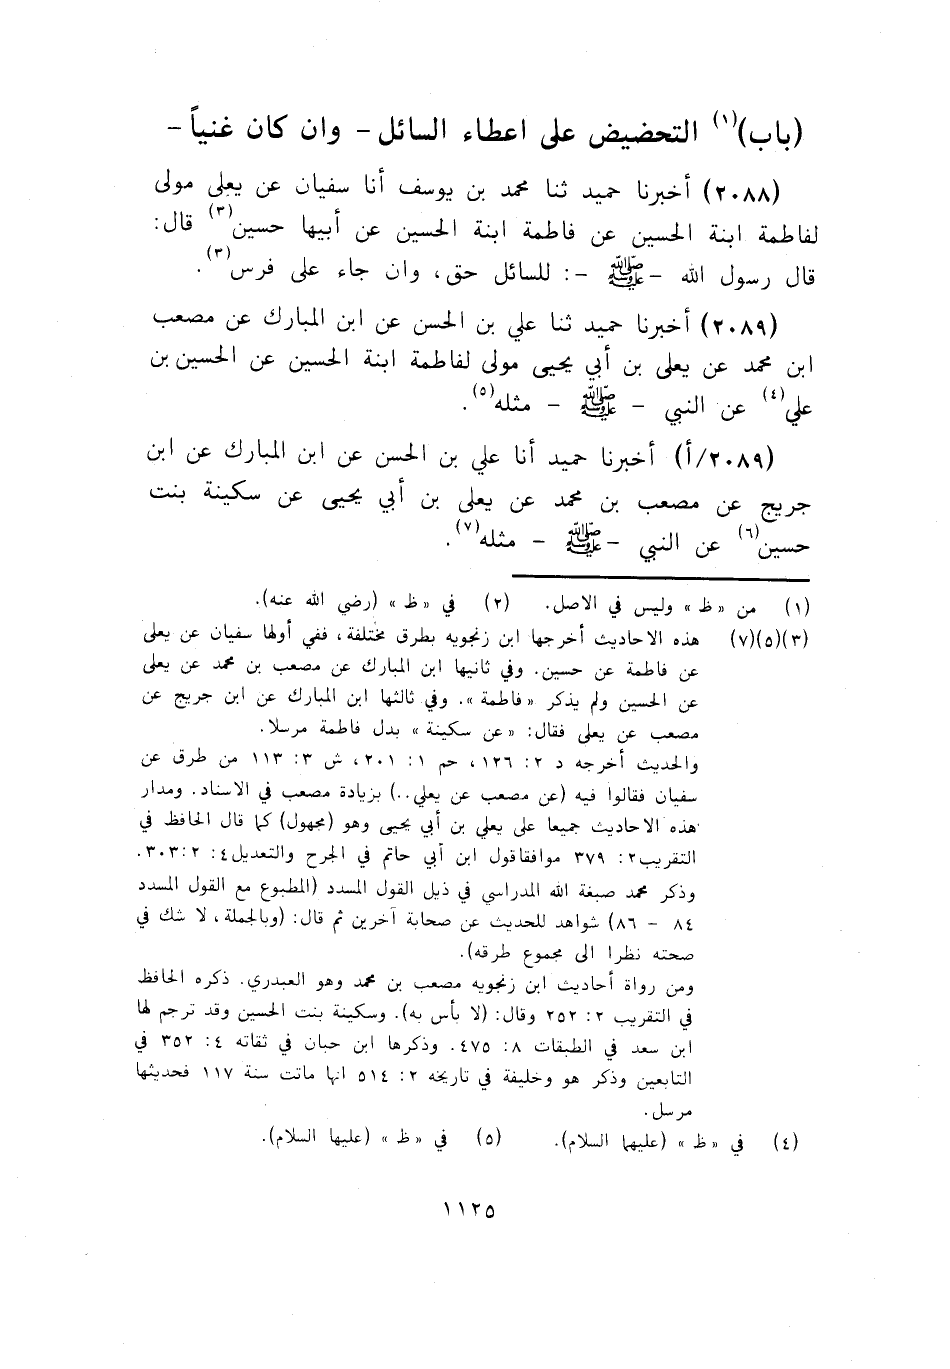 (باب)(١) التحضيض على اعطاء السائل - وان كان غنياً -
(٢٠٨٨) أخبرنا حميد ثنا محمد بن يوسف أنا سفيان عن يعلى مولى
لفاطمة ابنة الحسين عن فاطمة ابنة الحسين عن أبيها حسين(٣) قال:
قال رسول الله - ﷺ -: للسائل حق، وان جاء على فرس(٣).
(٢٠٨٩) أخبرنا حميد ثنا علي بن الحسن عن ابن المبارك عن مصعب
ابن محمد عن يعلى بن أبي يحيى مولى لفاطمة ابنة الحسين عن الحسين بن
علي(٤) عن النبي - ﷺ - مثله(٥).
(٢٠٨٩/أ) أخبرنا حميد أنا علي بن الحسن عن ابن المبارك عن ابن
جريج عن مصعب بن محمد عن يعلى بن أبي يحيى عن سكينة بنت
حسين(٦) عن النبي - ﷺ - مثله(٧).
(١) من «ظ» وليس في الاصل. (٢) في «ظ» (رضي الله عنه).
(٣)(٥)(٧) هذه الاحاديث أخرجها ابن زنجويه بطرق مختلفة، ففي أولها سفيان عن يعلى
عن فاطمة عن حسين. وفي ثانيها ابن المبارك عن مصعب بن محمد عن يعلى
عن الحسين ولم يذكر «فاطمة». وفي ثالثها ابن المبارك عن ابن جريج عن
مصعب عن يعلى فقال: «عن سكينة» بدل فاطمة مرسلا.
والحديث أخرجه د ٢: ١٢٦، حم ١: ٢٠١، ش ٣: ١١٣ من طرق عن
سفيان فقالوا فيه (عن مصعب عن يعلى..) بزيادة مصعب في الاسناد. ومدار
هذه الاحاديث جميعا على يعلي بن أبي يحيى وهو (مجهول) كما قال الحافظ في
التقريب٢: ٣٧٩ موافقاقول ابن أبي حاتم في الجرح والتعديل٤: ٣٠٣:٢.
وذكر محمد صبغة الله المدراسي في ذيل القول المسدد (المطبوع مع القول المسدد
٨٤ - ٨٦) شواهد للحديث عن صحابة آخرين ثم قال: (وبالجملة، لا شك في
صحته نظرا الى مجموع طرقه).
ومن رواة أحاديث ابن زنجويه مصعب بن محمد وهو العبدري. ذكره الحافظ
في التقريب ٢: ٢٥٢ وقال: (لا بأس به). وسكينة بنت الحسين وقد ترجم لها
ابن سعد في الطبقات ٨: ٤٧٥. وذكرها ابن حبان في ثقاته ٤: ٣٥٢ في
التابعين وذكر هو وخليفة في تاريخه ٢: ٥١٤ انها ماتت سنة ١١٧ فحديثها
مرسل.
(٤) في «ظ» (عليهما السلام). (٥) في «ظ» (عليها السلام).
١١٢٥